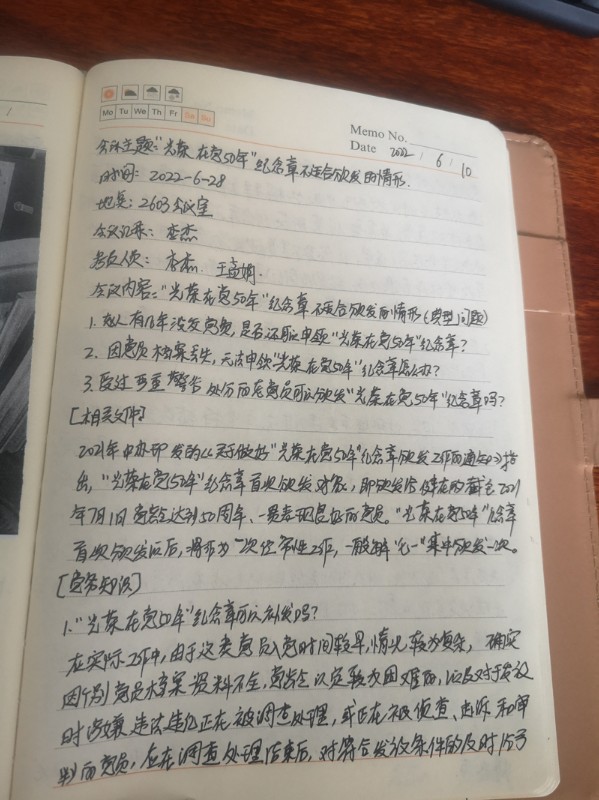 Mo Tu We Th Fr Sa Su
Memo No.
Date 2022 / 6 / 10
会议主题:“光荣在党50年”纪念章不适合颁发的情形.
时间: 2022-6-28
地点: 2603会议室
会议记录: 李杰
参会人员: 李杰. 王孟娟.
会议内容:“光荣在党50年”纪念章不适合颁发的情形(典型问题)
1. 处人有18年没交党费,是否还可以申领“光荣在党50年”纪念章?
2. 因党员档案丢失,无法申领“光荣在党50年”纪念章怎么办?
3. 受过严重警告处分的老党员可以颁发“光荣在党50年”纪念章吗?
[相关文件]
2021年中办印发的《关于做好“光荣在党50年”纪念章颁发工作的通知》指
出,“光荣在党50年”纪念章首次颁发对象,即颁发给健在的截至2021
年7月1日党龄达到50周年、一贯表现良好的党员。“光荣在党50年”纪念章
首次颁发以后,将作为一次经常性工作,一般每年“七一”集中颁发一次。
[党务知识]
1.“光荣在党50年”纪念章可以补发吗?
在实际工作中,由于这类党员入党时间较早,情况较为复杂,确实
因个别党员档案资料不全,党龄认定较为困难的,以及对于发放
时涉嫌违法违纪正在被调查处理,或正在被侦查、起诉和审
判的党员,应在调查处理结束后,对符合发放条件的及时给予